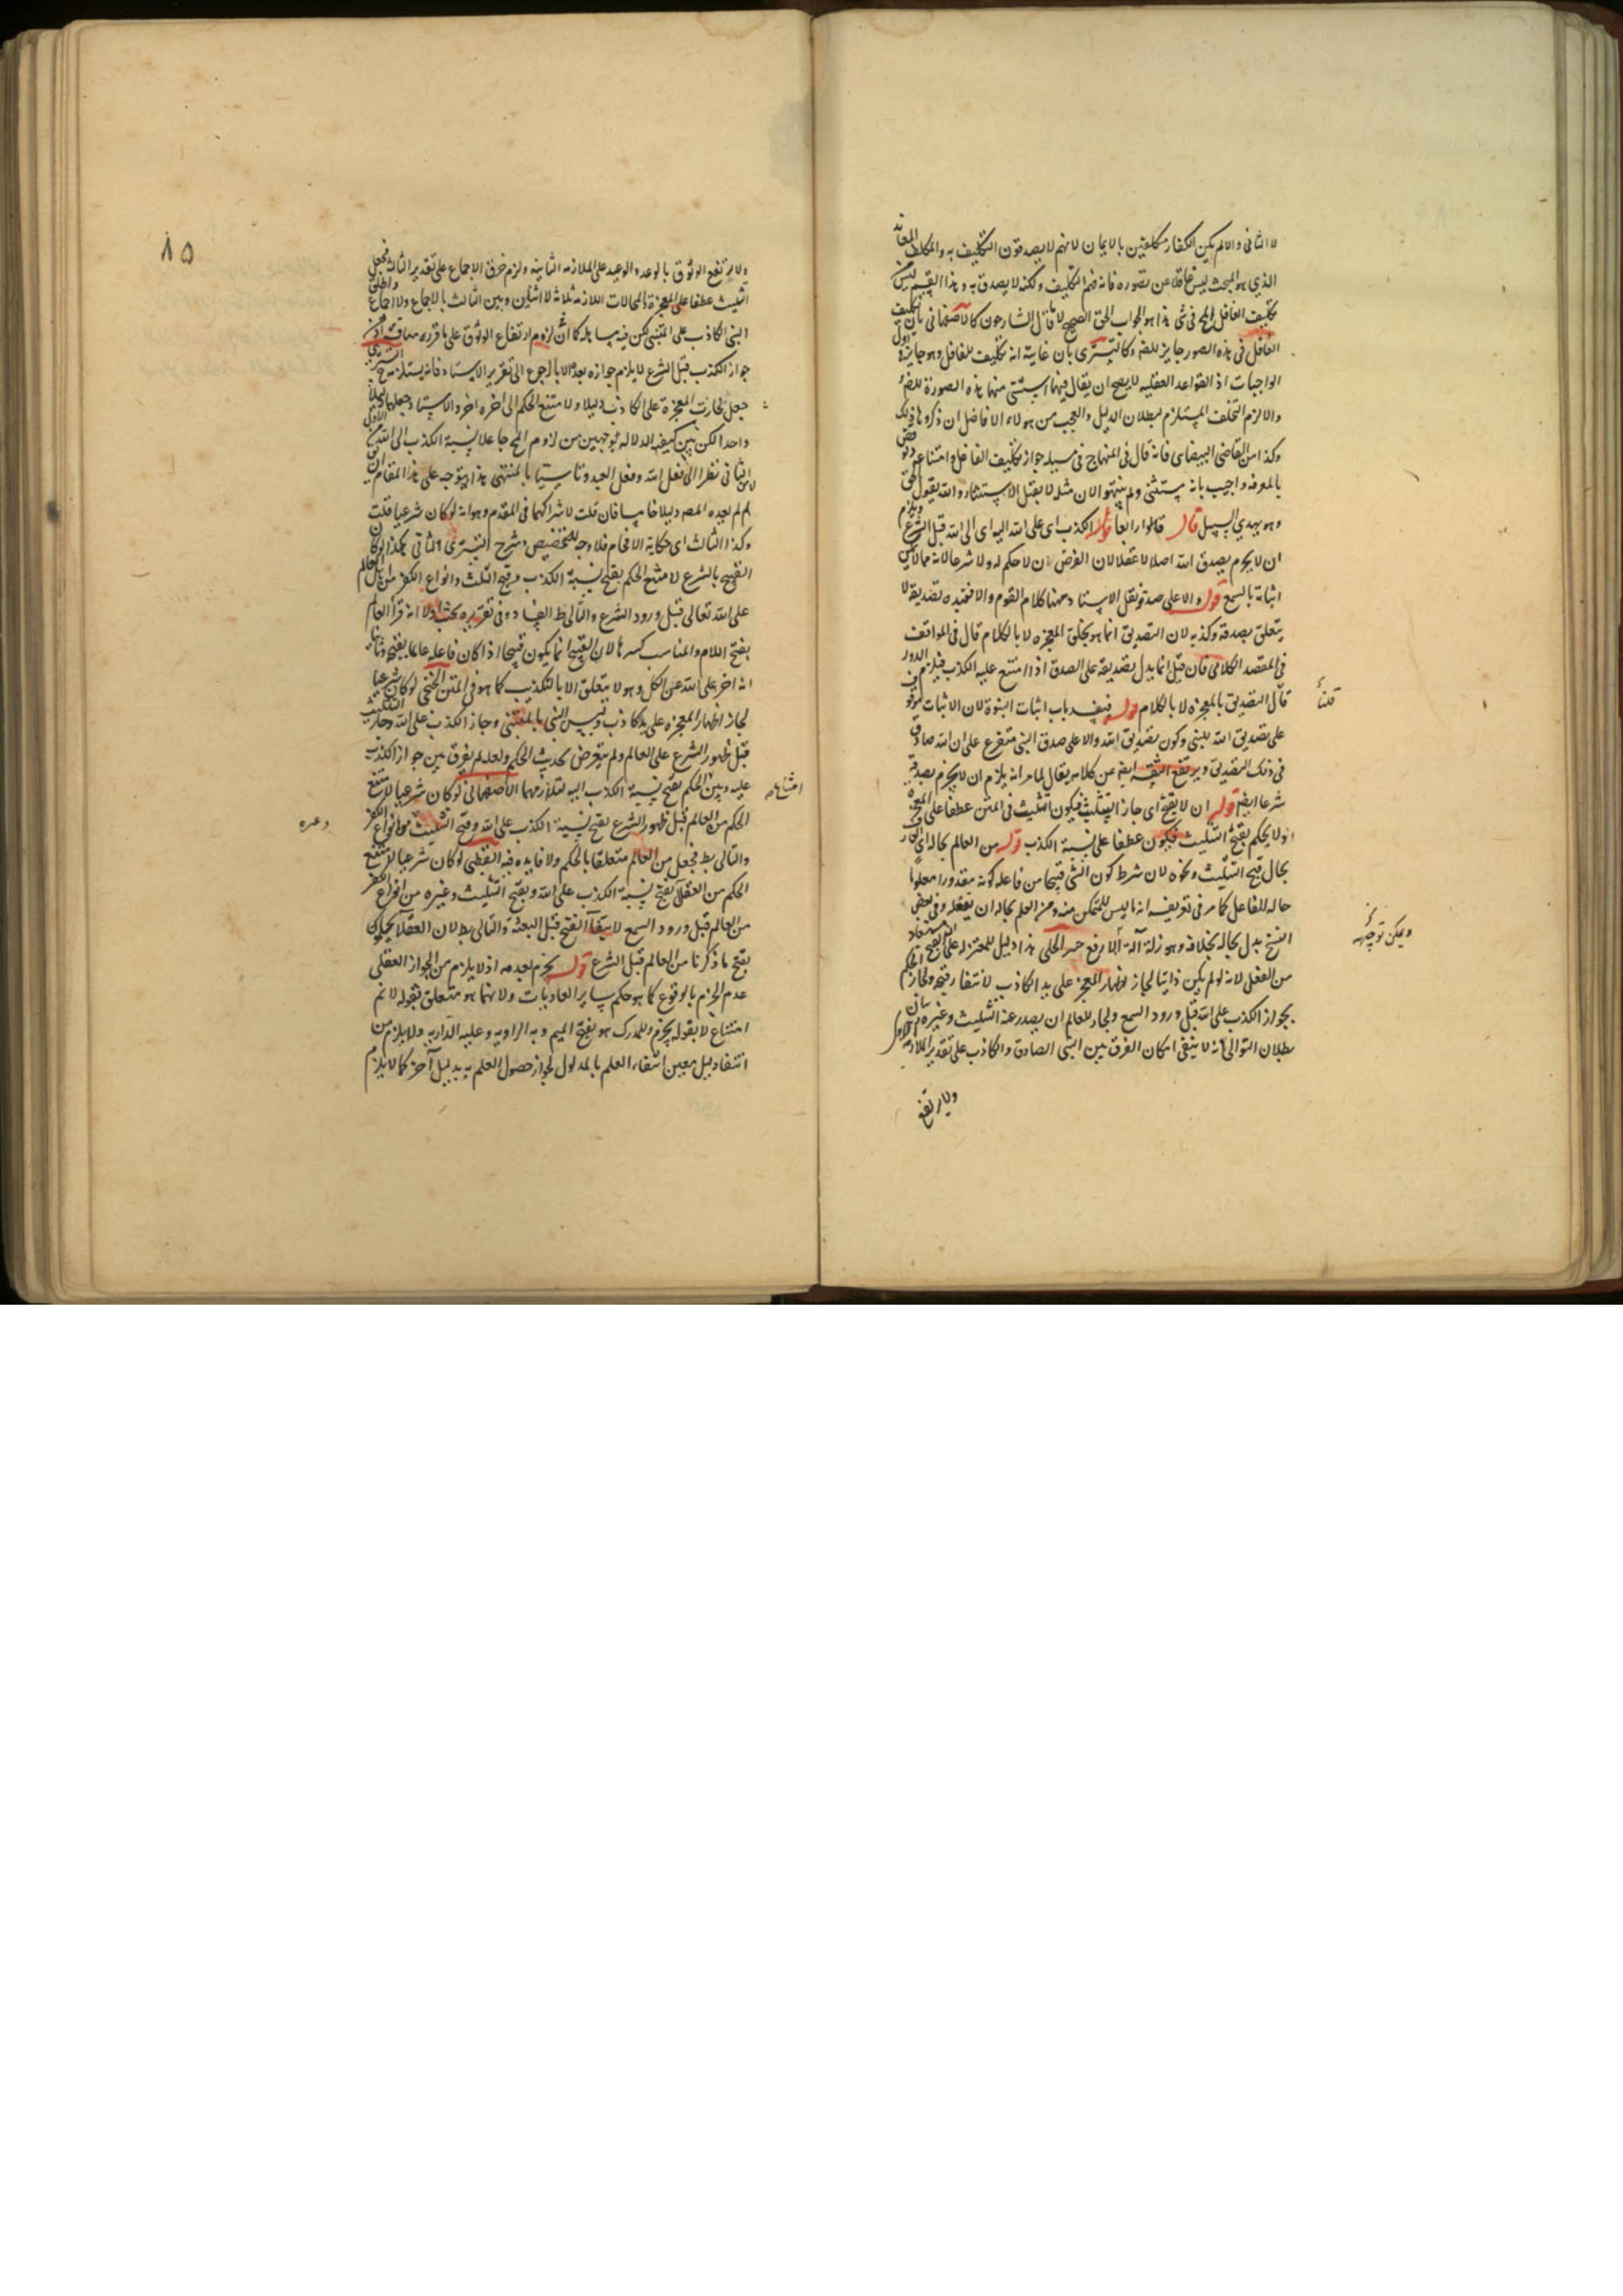 لا الثانى والالم يكن الكفار مكلفين بالايمان لانهم لا يصدقون التكليف به والمكلف
الذي هو المبحث ليس غافلا عن تصوره فانه فهم التكليف ولكنه لا يصدق به وهذا القسم ليس
تكليف الغافل المح فى شى هذا هو الجواب الحق الصحيح لا ما قال الشارحون كالاصفهانى بان تكليف
الغافل فى هذه الصور جايز للضر وكالتسترى بان غايته انه تكليف للغافل وهو جايز فى اول
الواجبات اذ القواعد العقليه لا يصح ان يقال فيها استثنى منها هذه الصورة للضر
والا لزم التخلف المستلزم لبطلان الدليل والعجب من هولاء الافاضل ان ذكروها فى ذلك
وكذا من القاضى البيضاوى فانه قال فى المنهاج فى مسيله جواز تكليف الغافل وامتناعه ونوقض
بالمعرفه واجيب بانه مستثنى ولم يتنبهوا لان مثله لا يقبل الاستثناء والله يقول الحق
وهو يهدي السبيل قال قالوا رابعا قوله الكذب اى على الله اليه اى الى الله قبل الشرع ويلزم
ان لا يجزم بصدق الله اصلا لا عقلا لان الفرض ان لا حكم له ولا شرعا لانه مما لا يمكن
اثباته بالسمع قوله والا على صدقه نقل الاستاد ههنا كلام القوم والا فعنده تصديقه لا
يتعلق بصدقه وكذبه لان التصديق انما هو بخلق المعجزه لا بالكلام قال فى المواقف
فى المقصد الكلامى فان قيل انما يدل تصديقه على الصدق اذا امتنع عليه الكذب فيلزم الدور
قال التصديق بالمعجزه لا بالكلام قوله فينسد باب اثبات النبوة لان الاثبات موقوف
على تصديق الله للنبى وكون تصديق الله والا على صدق النبى متفرع على ان الله صادق
فى ذلك التصديق ويرتفع الثقه ايض عن كلامه تعالى لما مر انه يلزم ان لا يجزم بصدقه
شرعا ايض قوله ان لا يقبح اى جاز التثليث فيكون التثليث فى المتن عطفا على المعجزه
او لا يحكم بقبح التثليث فيكون عطفا على نسبة الكذب قوله من العالم بحاله اى العارف
بحال قبح التثليث ونحوه لان شرط كون الشى قبيحا من فاعله كونه مقدورا معلوما
حاله للفاعل كما مر فى تعريفه انه ما ليس للمتمكن منه ومن العلم بحاله ان يفعله وفى بعض
النسخ بدل بحاله بخلافه وهو زلة آلة الرفع الحلى هذا دليل للمعتزله على ان القبح مستفاد
من العقل لانه لو لم يكن ذاتيا لجاز اظهار المعجز على يد الكاذب لانتفاء قبحه ولجاز الحكم
بجواز الكذب على الله قبل ورود السمع ولجاز للعالم ان يصدر عنه التثليث وغيره بيان
بطلان التوالى انه لا يبقى امكان الفرق بين النبى الصادق والكاذب على تقدير الملازمه الاولى
ولا يرتفع
قلنا
ويمكن توجيهه
٨٥
ولا يرتفع الوثوق بالوعد والوعيد على الملازمه الثانيه ولزم خرق الاجماع على تقدير الثالثه فجعل
التثليث عطفا على المعجزة والمحالات اللازمه ثلاثة لا اثنين وبين الثالث بالاجماع ولا اجماع
النبى الكاذب على المتنبى لكن فيه مساهله كما ان لزوم ارتفاع الوثوق على ما قرره
جواز الكذب قبل الشرع لا يلزم جوازه بعده الا بالرجوع الى تقرير الاستاد فانه يستلزمه
جعل لجازت المعجزة على الكاذب دليلا ولامتنع الحكم الى اخره اخر والاستاد جعلهما دليلا
واحدا لكن بين كيفيه الدلاله بوجهين من لزوم المح جاعلا نسبة الكذب الى الله
الثانى نظرا الى فعل الله وفعل العبد
لم لم يعده المصه دليلا خامسا فان قلت لاشتراكهما فى المقدم وهو انه لو كان شرعيا قلت
وكذا الثالث اى حكاية الافحام فلا وجه للتخصيص وشرح التسترى الثانى هكذا لو كان
القبيح بالشرع لامتنع الحكم بقبح نسبة الكذب وقبح التثليث وانواع الكفر من العالم
على الله تعالى قبل ورود الشرع والتالى ظ الفساد وفى تقريره بحث اولا انه قرأ العالم
بفتح اللام والمناسب كسرها لان القبيح انما يكون قبيحا اذا كان فاعله عالما بقبحه وثانيا
انه اخر على الله عن الكل وهو لا يتعلق الا بالتكذيب كما هو فى المتن الخنجى لو كان شرعيا
لجاز اظهار المعجزه على يد كاذب وتلبس النبى بالمتنبى وجاز الكذب على الله وجاز التثليث
قبل ظهور الشرع على العالم ولم يتعرض لحديث الحكم ولعله لم يفرق بين جواز الكذب
عليه وبين الحكم بقبح نسبة الكذب اليه لتلازمهما الاصفهانى لو كان شرعيا لامتنع
الحكم من العالم قبل ظهور الشرع بقبح نسبة الكذب على الله وقبح التثليث وانواع الكفر
والتالى بط فجعل من العالم متعلقا بالحكم ولا فايده فيه القطبى لو كان شرعيا لامتنع
الحكم من العقلاء بقبح نسبة الكذب على الله وبقبح التثليث وغيره من انواع الكفر
من العالم قبل ورود السمع لانتفاء القبح قبل البعثة والتالى بط لان العقلاء يحكمون
بقبح ما ذكرنا من العالم قبل الشرع قوله يجزم بعدمه اذ لا يلزم من الجواز العقلى
عدم الجزم بالوقوع كما هو حكم ساير العاديات ولانهما هو متعلق بقوله لا نم
امتناع لا بقوله يجزم وللمدرك هو بفتح الميم وبه الرواية وعليه الدراية ولا يلزم من
انتفاء دليل معين انتفاء العلم بالمدلول لجواز حصول العلم به بدليل آخر كما لا يلزم
امتناع
وغيره